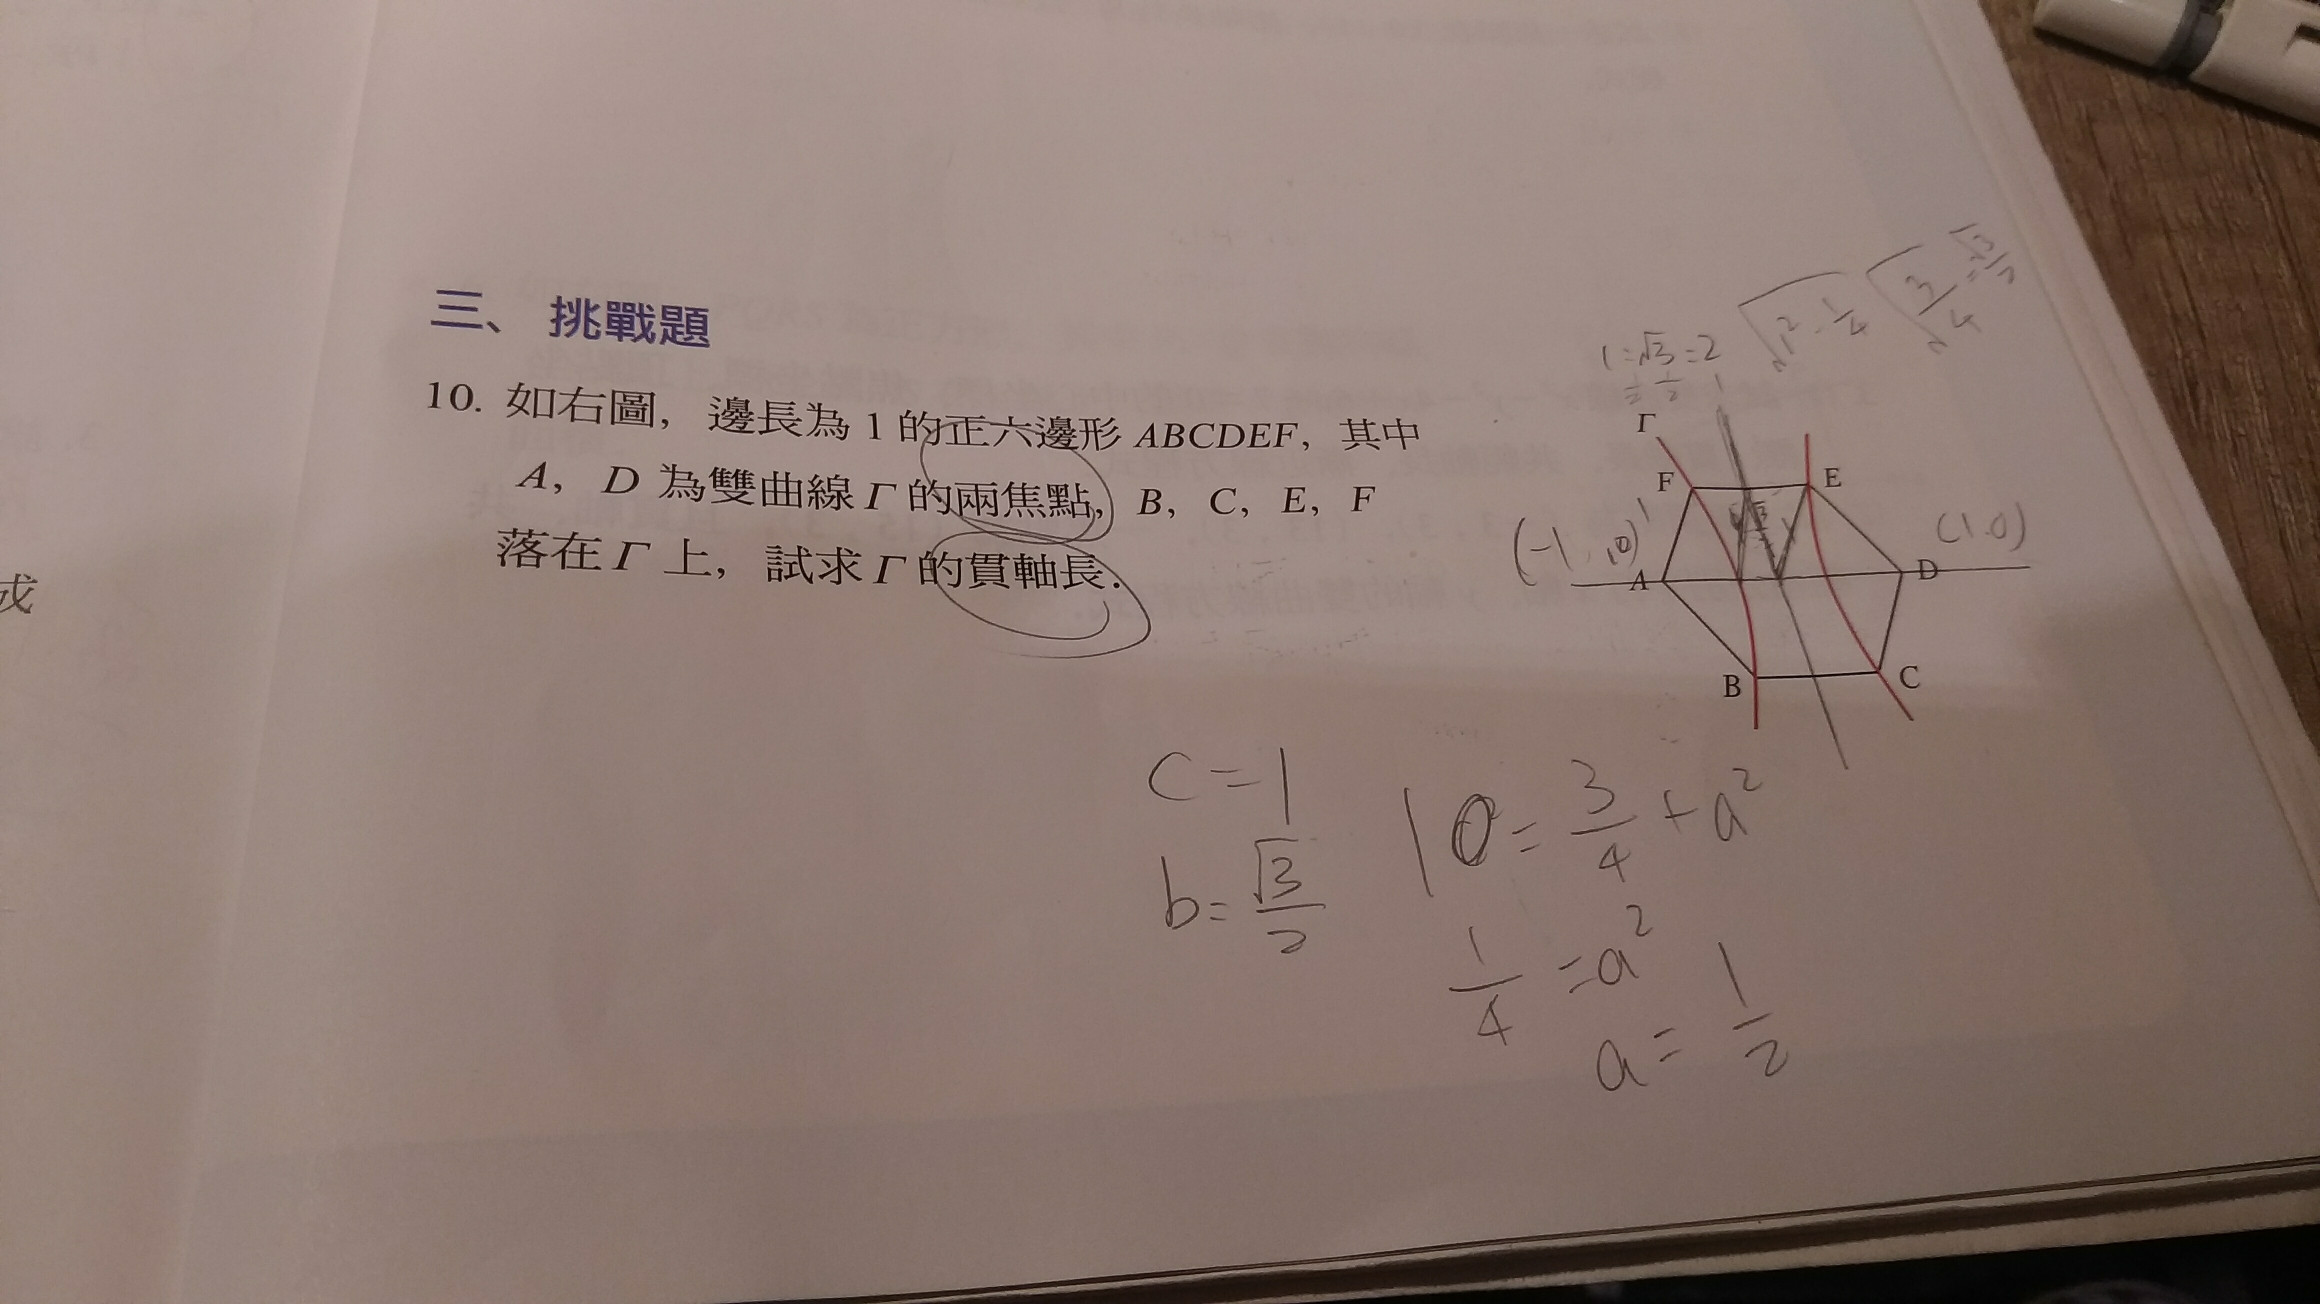 三、 挑戰題
10. 如右圖，邊長為 1 的正六邊形 ABCDEF，其中
A，D 為雙曲線 Γ 的兩焦點，B，C，E，F
落在 Γ 上，試求 Γ 的貫軸長．
1:√3:2
Γ
F
E
(-1,0)
1
A
D
(1.0)
B
C
c=1
b=√3/2
0=3/4+a²
1/4=a²
a=1/2
或